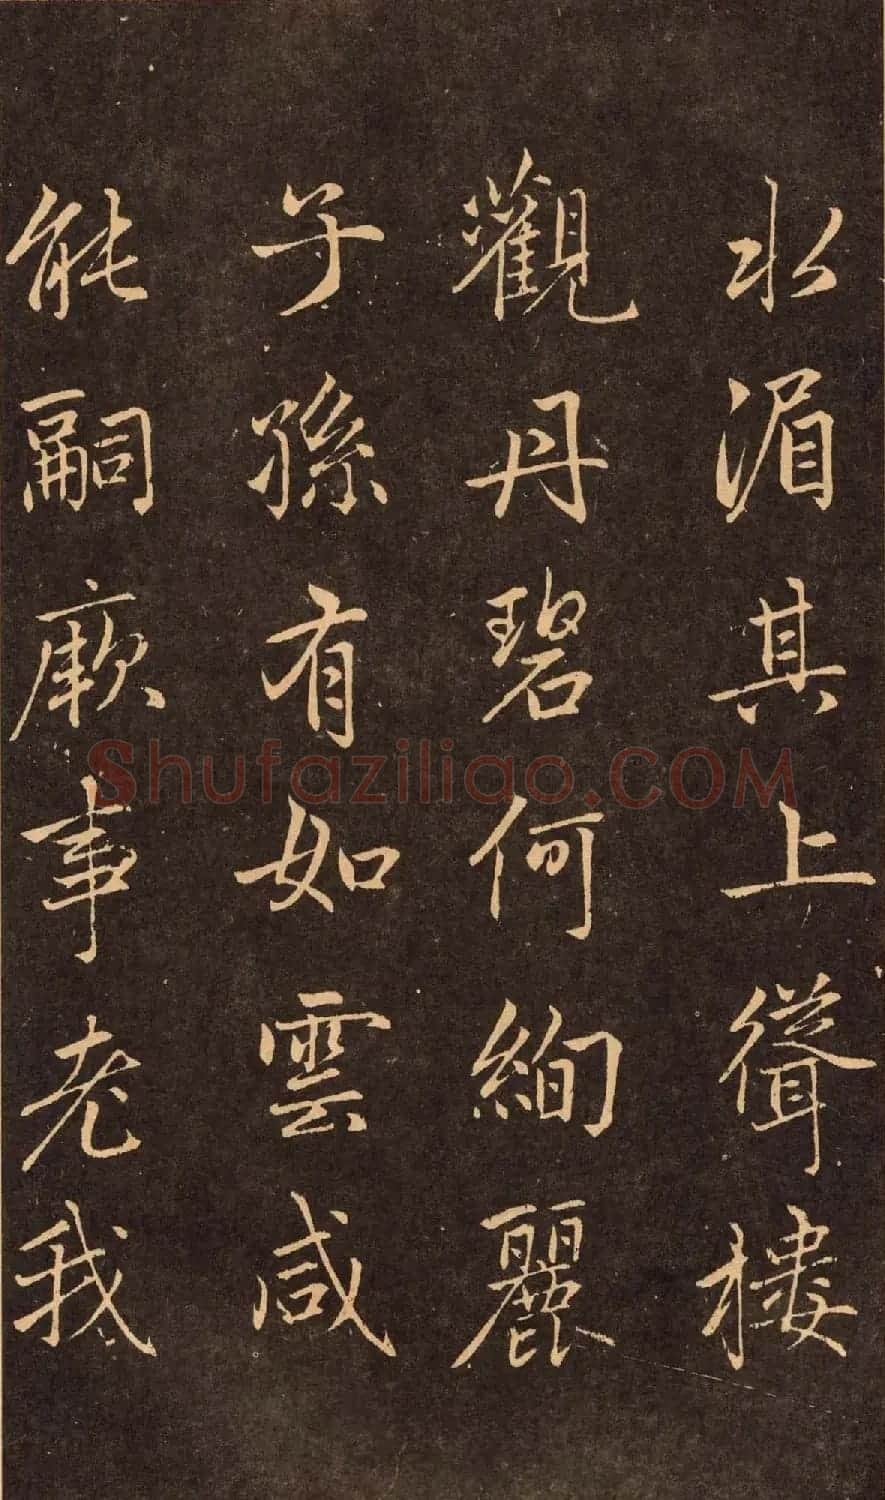 水湄其上聳樓
觀丹碧何絢麗
子孫有如雲咸
能嗣厥事老我
Shufaziliao.COM